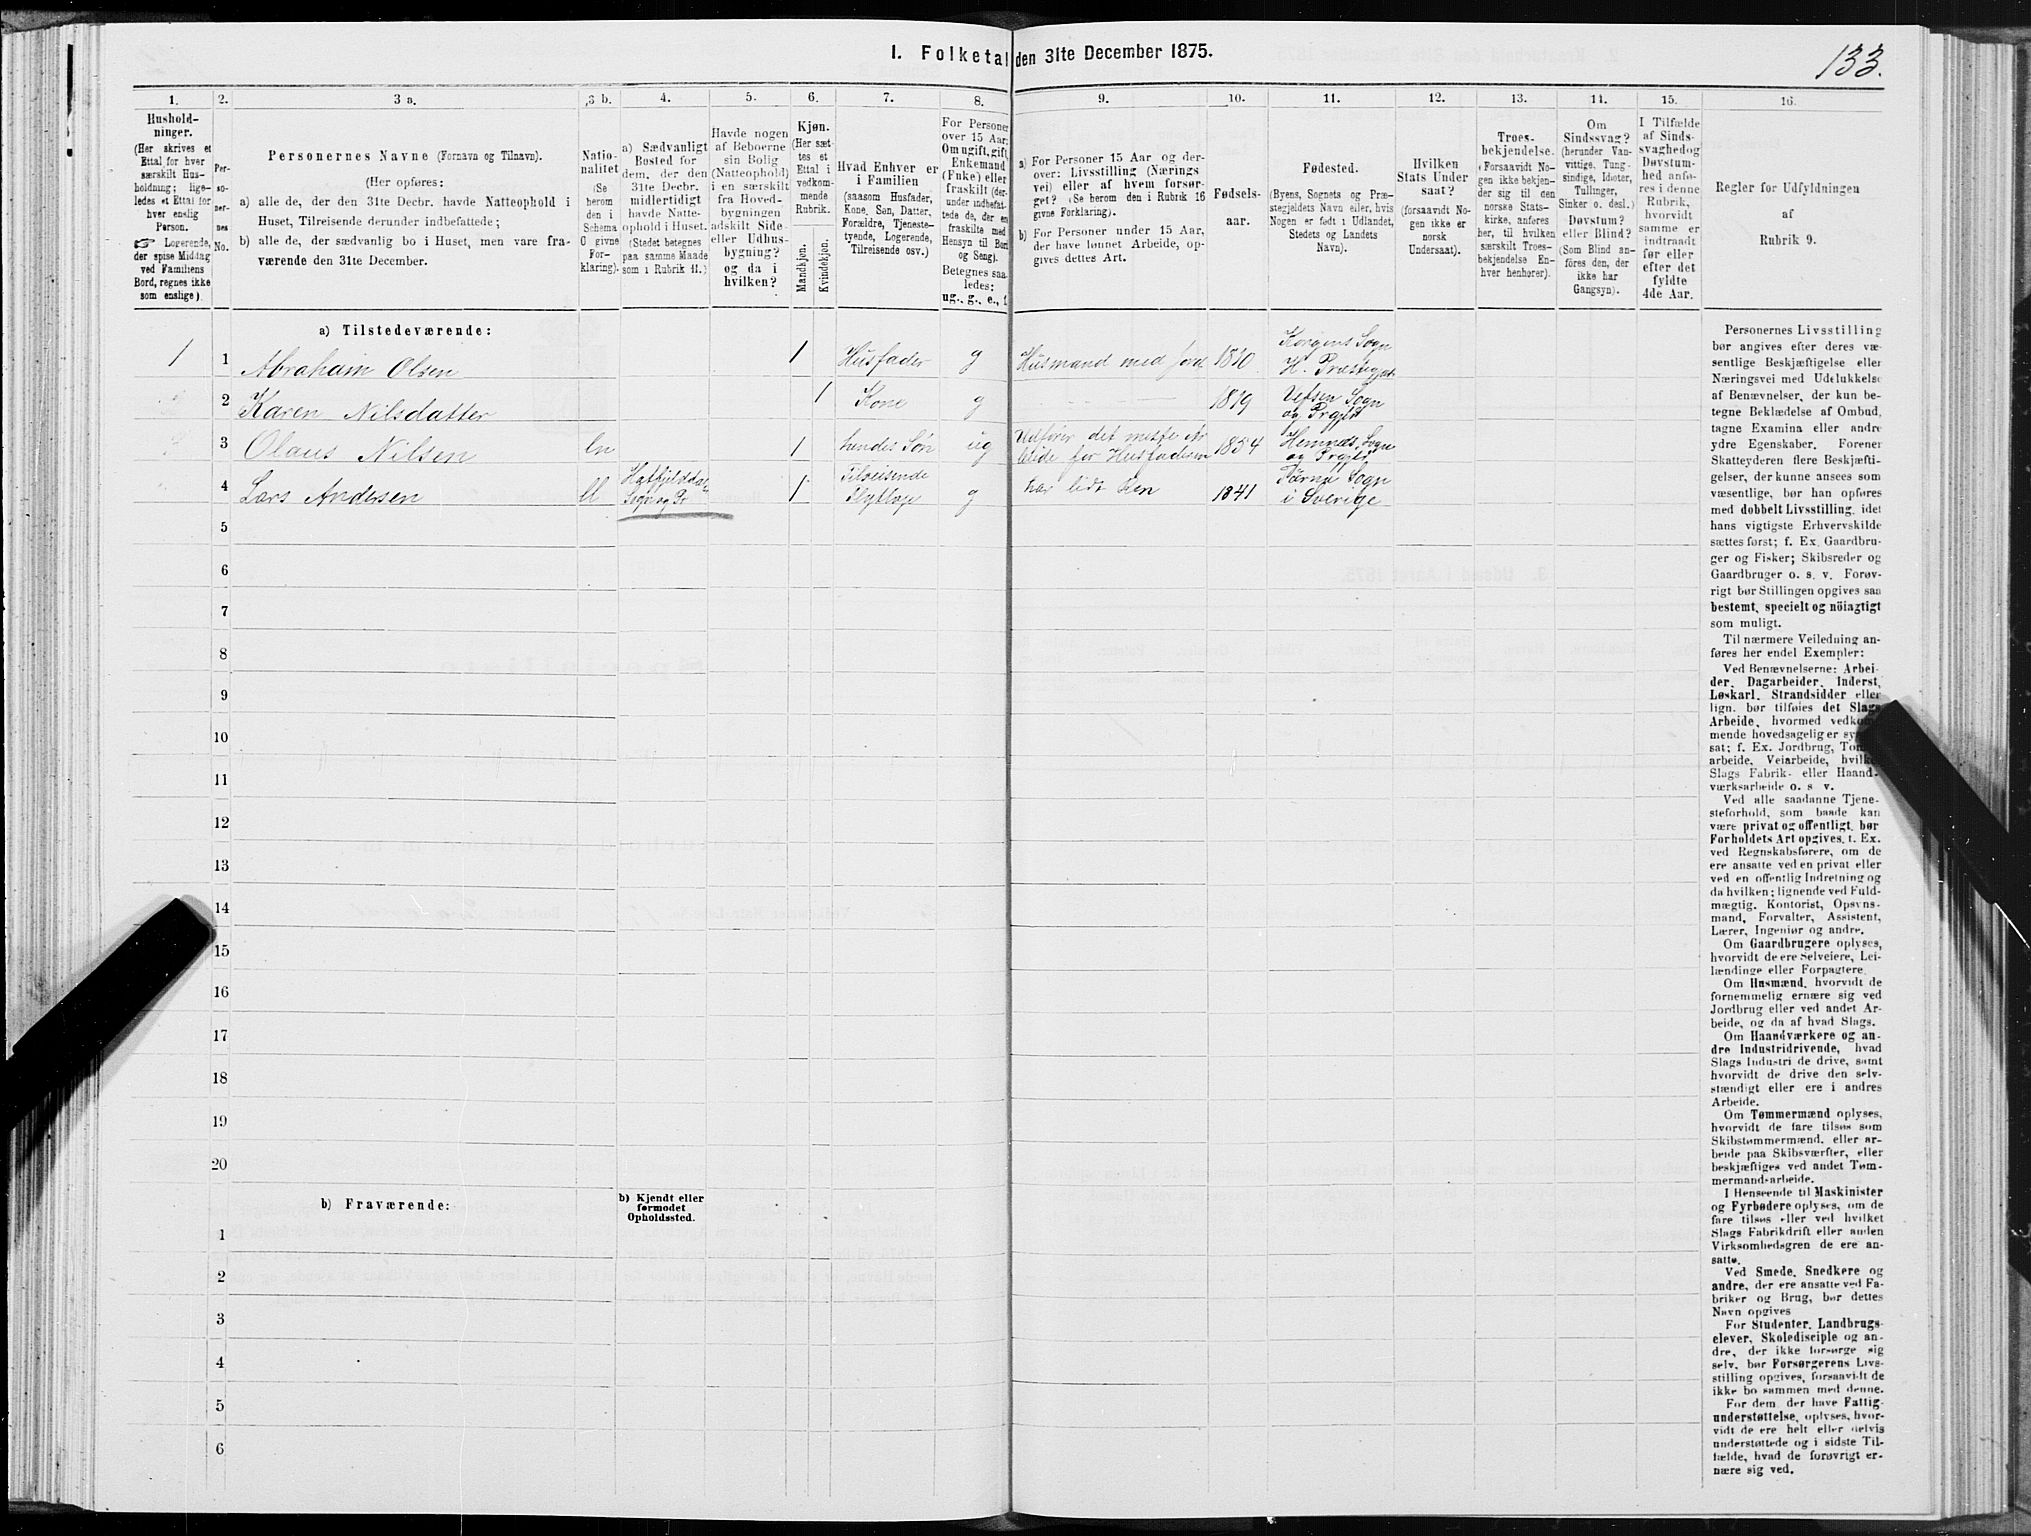 1. Folketal den 31te December 1875.
133.
1.
Hushold-
ninger.
(Her skrives et
Ettal for hver
særskilt Hus-
holdning; lige-
ledes et Ettal for
hver enslig
Person.
☞ Logerende,
der spise Middag
ved Familiens
Bord, regnes ikke
som enslige).
2.
Per-
so-
ner-
nes
No.
3 a.
Personernes Navne (Fornavn og Tilnavn).
(Her opføres:
a) alle de, der den 31te Decbr. havde Natteophold i
Huset, Tilreisende derunder indbefattede;
b) alle de, der sædvanlig bo i Huset, men vare fra-
værende den 31te December.
3 b.
Natio-
nalitet
(Se
herom
den i
Schema
O givne
For-
klaring).
4.
a) Sædvanligt
Bosted for
dem, der den
31te Decbr.
midlertidigt
havde Natte-
ophold i Huset.
(Stedet betegnes
paa samme Maade
som i Rubrik 11.)
5.
Havde nogen
af Beboerne
sin Bolig
(Natteophold)
i en særskilt
fra Hoved-
bygningen
adskilt Side-
eller Udhus-
bygning?
og da i
hvilken?
6.
Kjøn.
(Her sæt-
tes et
Ettal i
vedkom-
mende
Rubrik.
Mandkjøn.
Kvindekjøn.
7.
Hvad Enhver er
i Familien
(saasom Husfader,
Kone, Søn, Datter,
Forældre, Tjeneste-
tyende, Logerende,
Tilreisende osv.)
8.
For Personer
over 15 Aar:
Om ugift, gift,
Enkemand
(Enke) eller
fraskilt (der-
under indbefat-
tede de, der ere
fraskilte med
Hensyn til Bord
og Seng).
Betegnes saa-
ledes:
ug., g., e., f.
9.
a) For Personer 15 Aar og der-
over: Livsstilling (Nærings
vei) eller af hvem forsør-
get? (Se herom den i Rubrik 16
givne Forklaring).
b) For Personer under 15 Aar,
der have lønnet Arbeide, op-
gives dettes Art.
10.
Fødsels-
aar.
11.
Fødested.
(Byens, Sognets og Præ-
stegjeldets Navn eller, hvis
Nogen er født i Udlandet,
Stedets og Landets
Navn).
12.
Hvilken
Stats Under
saat?
(forsaavidt No-
gen ikke er
norsk
Undersaat).
13.
Troes-
bekjendelse.
(Forsaavidt No-
gen ikke bekjen-
der sig til den
norske Stats-
kirke, anføres
her, til hvilken
særskilt Troes-
bekjendelse En-
hver henhører).
14.
Om
Sindssvag?
(herunder Van-
vittige, Tung-
sindige, Idioter,
Tullinger,
Sinker o. desl.)
Døvstum?
eller Blind?
(Som Blind an-
føres den, der
ikke har
Gangsyn).
15.
I Tilfælde
af Sinds-
svaghed og
Døvstum-
hed anfø-
res i denne
Rubrik,
hvorvidt
samme er
indtraadt
før eller
efter det
fyldte
4de Aar.
16.
Regler for Udfyldningen
af
Rubrik 9.
a) Tilstedeværende:
1 1 Abraham Olsen 1 Husfader g Husmand med Jord 1810 Korgens Sogn
H. Præstegjeld
2 Karen Nilsdatter 1 Kone g 1819 Vefsen Sogn
og Prgjeld
3 Olaus Nilsen ln 1 hendes Søn ug Udfører det meste Ar
beide for Husfaderen 1854 Hemnæs Sogn
og Prgjeld
4 Lars Andersen ll Hatfjelddal
Sogn og Pr 1 Tilreisende g har lidt 1841 Tærna Sogn
i Sverige
5
6
7
8
9
10
11
12
13
14
15
16
17
18
19
20
b) Fraværende:
b) Kjendt eller
formodet
Opholdssted.
1
2
3
4
5
6
Personernes Livsstilling
bør angives efter deres væ-
sentlige Beskjæftigelse eller
Næringsvei med Udelukkelse
af Benævnelser, der kun be-
tegne Beklædelse af Ombud,
tagne Examina eller andre
ydre Egenskaber. Forener
Skatteyderen flere Beskjæfti-
gelser, der kunne ansees som
væsentlige, bør han opføres
med dobbelt Livsstilling, idet
hans vigtigste Erhvervskilde
sættes først; f. Ex. Gaardbru-
ger og Fisker; Skibsreder og
Gaardbruger o. s. v. Forøv-
rigt bør Stillingen opgives saa
bestemt, specielt og nöiagtigt
som muligt.
Til nærmere Veiledning an-
føres her endel Exempler:
Ved Benævnelserne: Arbei-
der, Dagarbeider, Inderst,
Løskarl, Strandsidder eller
lign. bør tilføies det Slags
Arbeide, hvormed vedkom-
mende hovedsagelig er syssel-
sat; f. Ex. Jordbrug, Tomte-
arbeide, Veiarbeide, hvilket
Slags Fabrik- eller Haand-
værksarbeide o. s. v.
Ved alle saadanne Tjene-
steforhold, som baade kan
være privat og offentligt, bør
Forholdets Art opgives, t. Ex.
ved Regnskabsførere, om de
ere ansatte ved en privat eller
ved en offentlig Indretning og
da hvilken; lignende ved Fuld-
mægtig, Kontorist, Opsyns-
mand, Forvalter, Assistent,
Lærer, Ingeniør og andre.
Om Gaardbrugere oplyses,
hvorvidt de ere Selveiere, Lei-
lændinge eller Forpagtere.
Om Husmænd, hvorvidt de
fornemmelig ernære sig ved
Jordbrug eller ved andet Ar-
beide, og da af hvad Slags.
Om Haandværkere og an-
dre Industridrivende, hvad
Slags Industri de drive, samt
hvorvidt de drive den selv-
stændigt eller ere i andres
Arbeide.
Om Tømmermænd oplyses,
hvorvidt de fare tilsøs som
Skibstømmermænd, eller ar-
beide paa Skibsværfter, eller
beskjæftiges ved andet Tøm-
mermandsarbeide.
I Henseende til Maskinister
og Fyrbødere oplyses, om de
fare tilsøs eller ved hvilket
Slags Fabrikdrift eller anden
Virksomhedsgren de ere an-
satte.
Ved Smede, Snedkere og
andre, der ere ansatte ved Fa-
briker og Brug, bør dettes
Navn opgives
For Studenter, Landbrugs-
elever, Skoledisciple og an-
dre, der ikke forsørge sig
selv, bør Forsørgerens Livs-
stilling opgives, forsaavidt de
ikke bo sammen med denne.
For dem, der have Fattig-
understøttelse, oplyses, hvor-
vidt de ere helt eller delvis
understøttede og i sidste Til-
fælde, hvad de forøvrigt er-
nære sig ved.